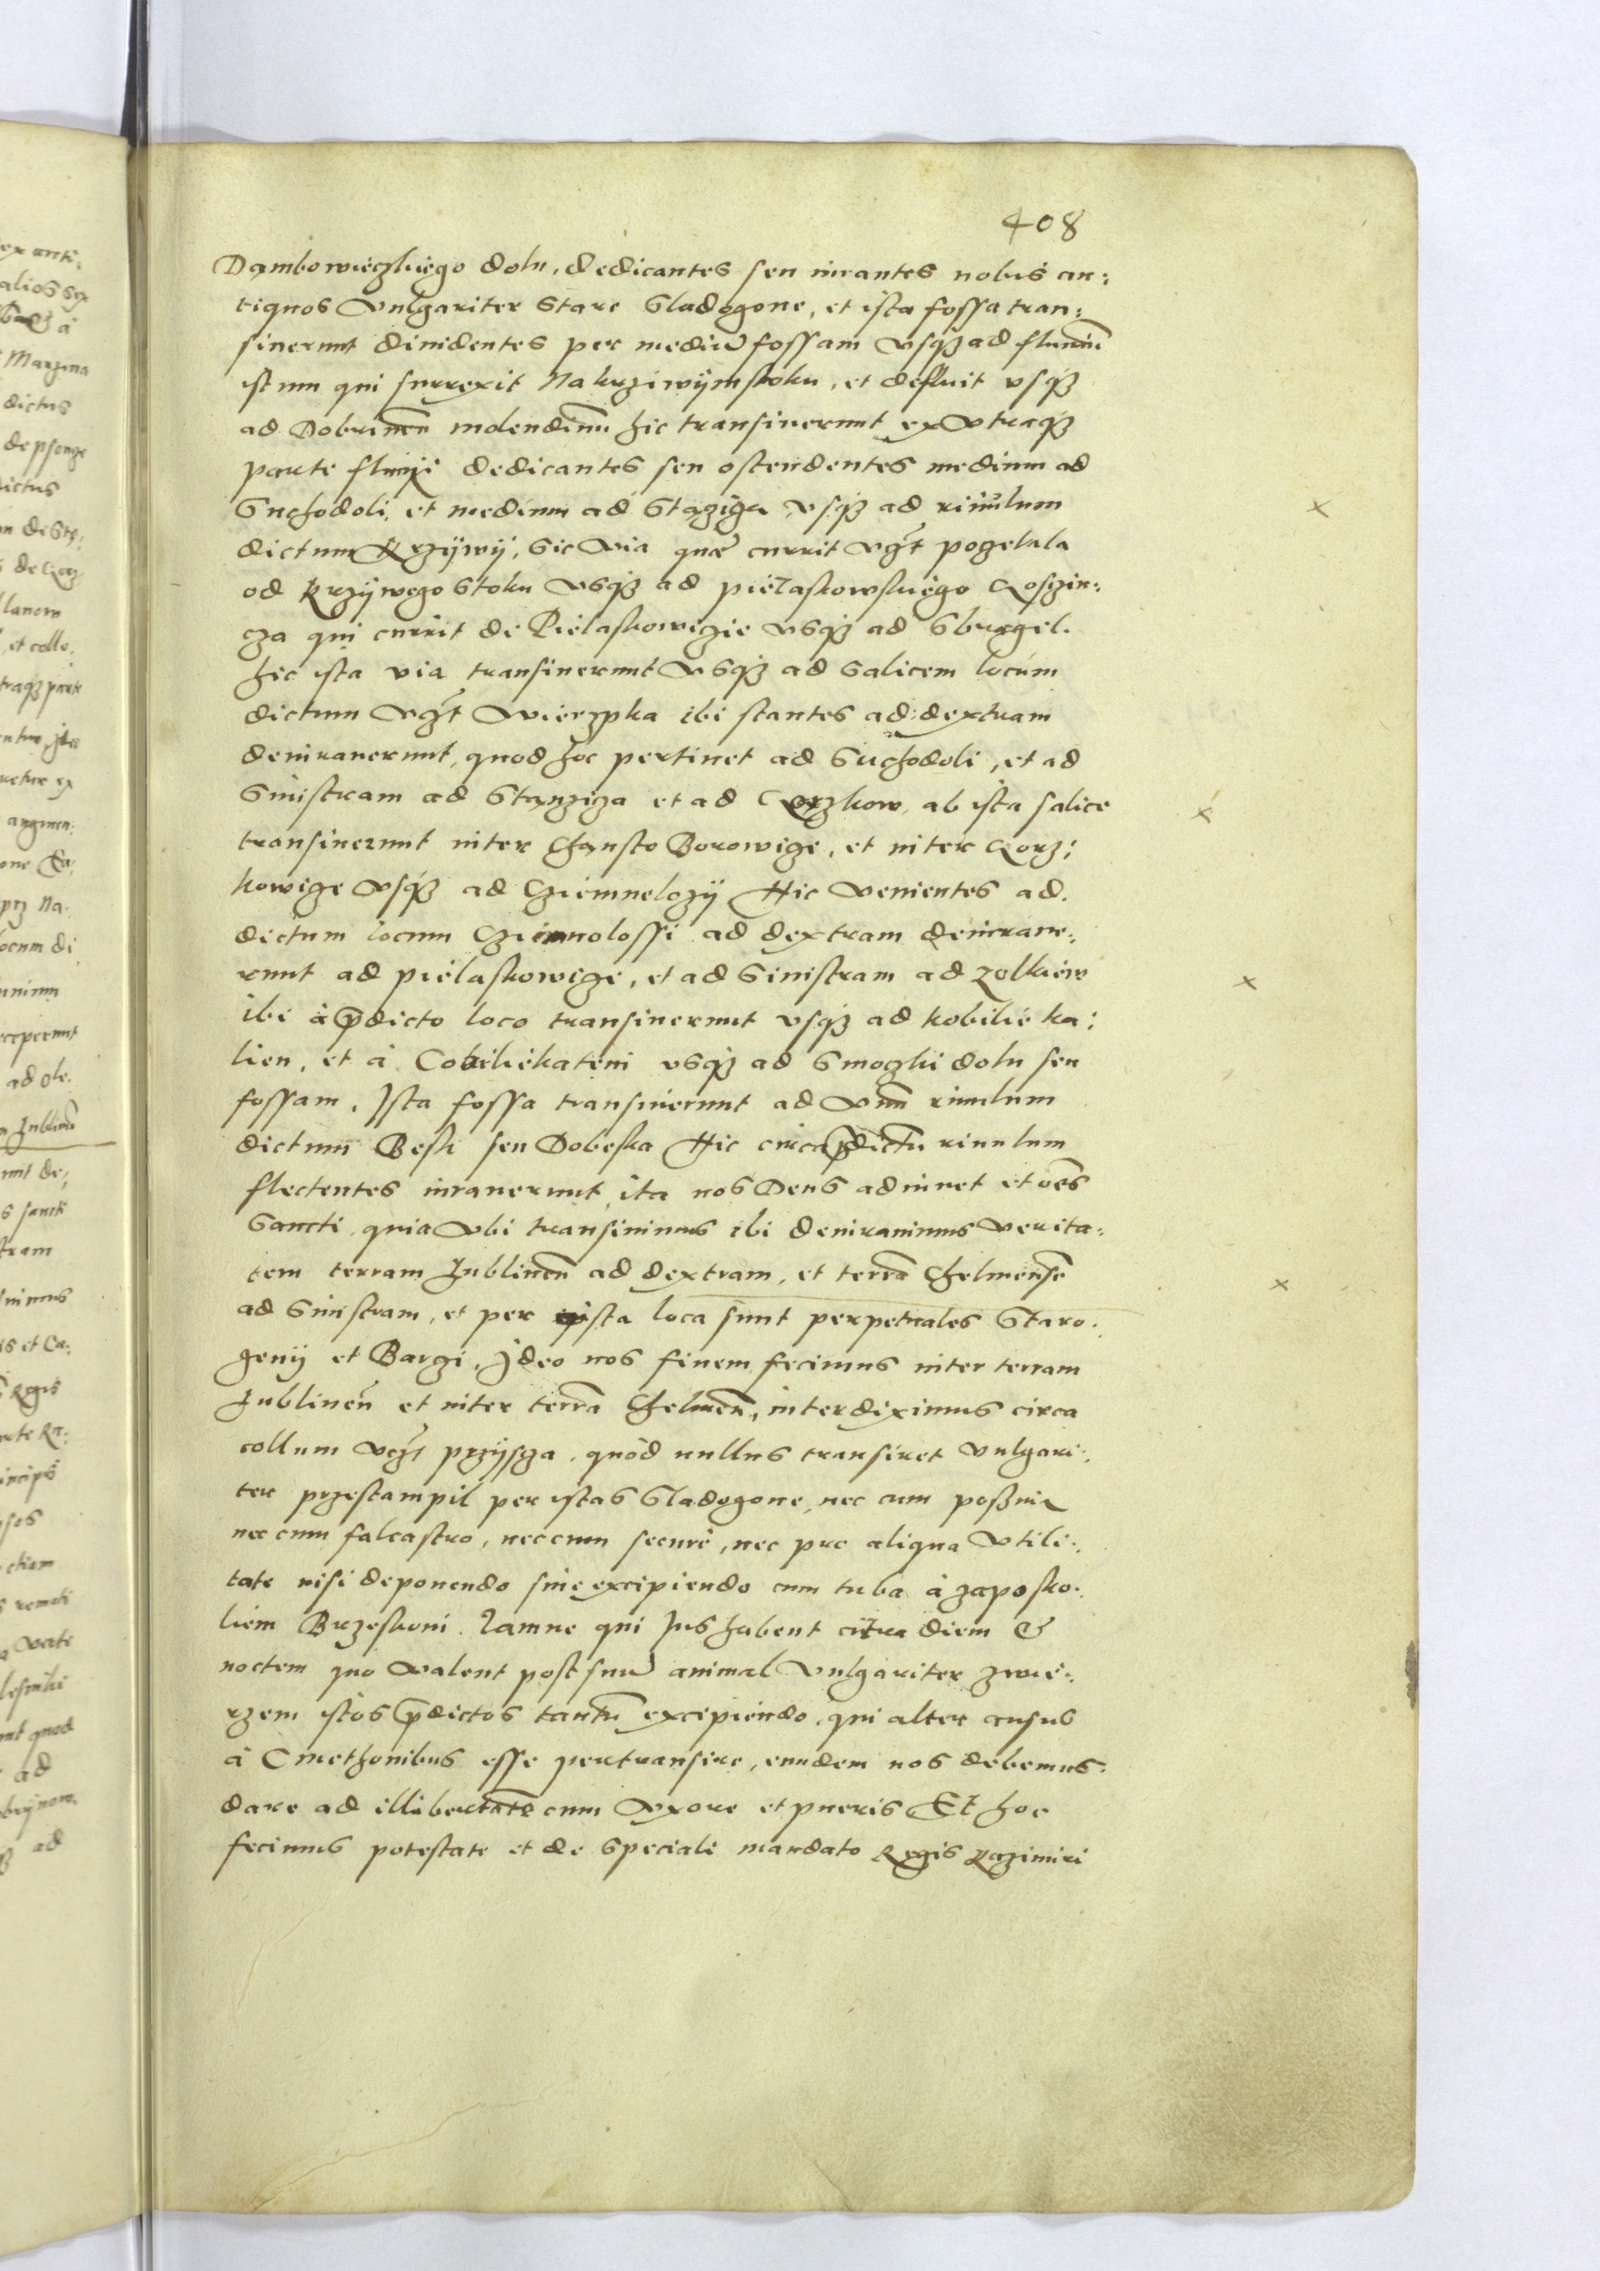 408
Dambowieczkiego dolu, dedicantes seu iurantes nobis an:
tiquos Vulgariter Stare Sladogone, et ista fossa tran:
siuerunt diuidentes per mediũ fossam vsq3 ad fluuiũ
istum qui surrexit Na krziwÿm stoku, et defluit vsq3
ad Dobrinen̄ molendinũ hic transiuerunt ex vtraq3
parte fluuij dedicantes seu ostendentes medium ad
Suchodoli, et medium ad Stąziga vsq3 ad riuulum
dictum Krzÿwÿ, Sic Via quæ currit vgr̃t pogelala
od Krzÿwego Stoku vsq3 ad pielaskowskiego Goscin:
cza qui currit de Pielaskowczie vsq3 ad Sbrzegel.
hic ista via transiuerunt vsq3 ad Salicem locum
dictum vgr̃t Wierzpka ibi stantes ad dextram
deiurauerunt, quod hoc pertinet ad Suchodoli, et ad
Sinistram ad Stanziza et ad Gorzkow, ab ista salice
transiuerunt inter Chansto Borowicze, et inter Gorz:
kowicze vsq3 ad Cziemnelozÿ Hic Venientes ad
dictum locum Cziemnolossi ad dextram deiuraue:
runt ad pielaskowicze, et ad Sinistram ad Zolkiew
ibi à p̄dicto loco transiuerunt vsq3 ad kobilie ka:
lien, et à Cobiliekateni vsq3 ad Smoczki dolu seu
fossam. Ista fossa transiuerunt ad Vnũ riuulum
dictum Besk seu Dobeska Hic circa p̄dictũ riuulum
flectentes iurauerunt, ita nos Deus adiuuet et oēs
Sancti, quia Vbi transiuimus ibi deiurauimus Verita:
tem terram Lublinen̄ ad dextram, et terrã Chelmensē
ad Sinistram, et per ista loca sunt perpetuales Staro:
zenÿ et Bargi, Ideo nos finem fecimus inter terram
Lublinen̄ et inter terrã Chelmen̄, interdiximus circa
collum vgr̃t przÿsza, quod nullus transiret Vulgari:
ter przestampil per istas Sladogone, nec cum
nec cum falcastro, nec cum securi, nec pro aliqua Vtili:
tate nisi deponendo siue excipiendo cum tuba à zaposko:
liem Brzeskoni. Iamne qui Ius habent citra diem &
noctem quo Valent post suũ animal Vulgariter zwie:
rzem istos p̄dictos tantũ excipiendo, qui alter ausus
à Cmethonibus esse pertransire, eundem nos debemus
dare ad illibertatē cum Vxore et pueris Et hoc
fecimus potestate et de speciali mandato Regis Kazimiri